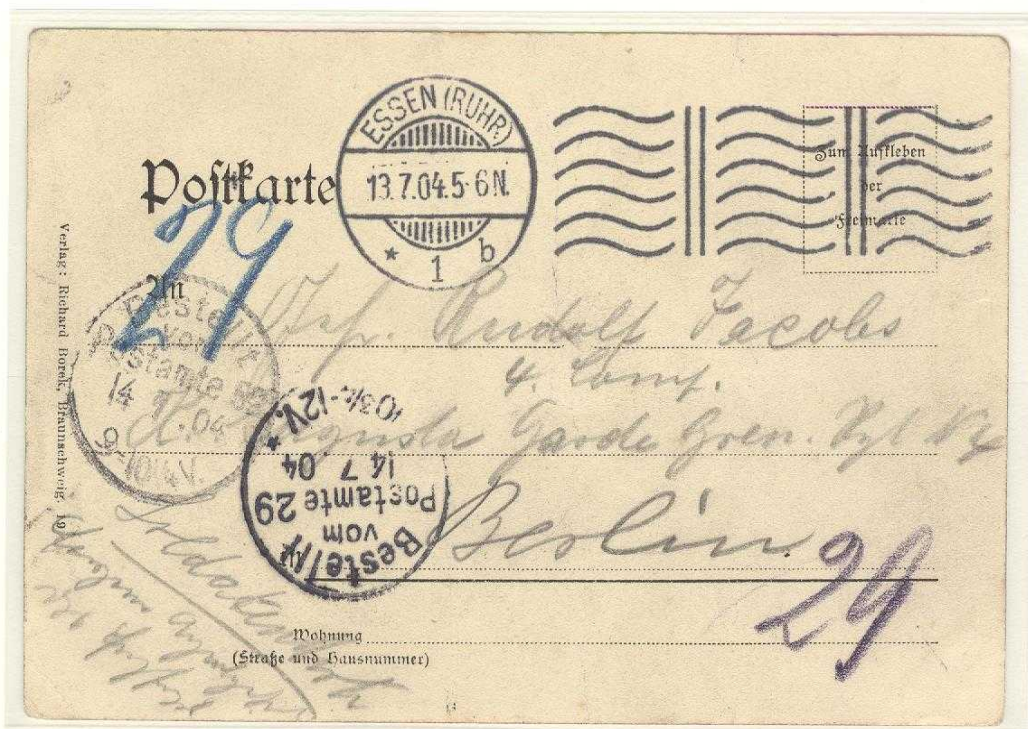 Postkarte
ESSEN (RUHR)
13.7.04.5-6N.
* 1 b
Zum Aufkleben
der
Freimarke
29
An
Rudolf Jacobs
4. Comp.
Augusta Garde Gren. Rgt. N 4
Berlin.
29
Bestellt
vom
Postamte
14 7 .04
9-10¼V.
Bestellt
vom
Postamte 29
14 7 04
10¾-12V. *
Soldaten
Wohnung
(Straße und Hausnummer)
Verlag: Richard Borek, Braunschweig.